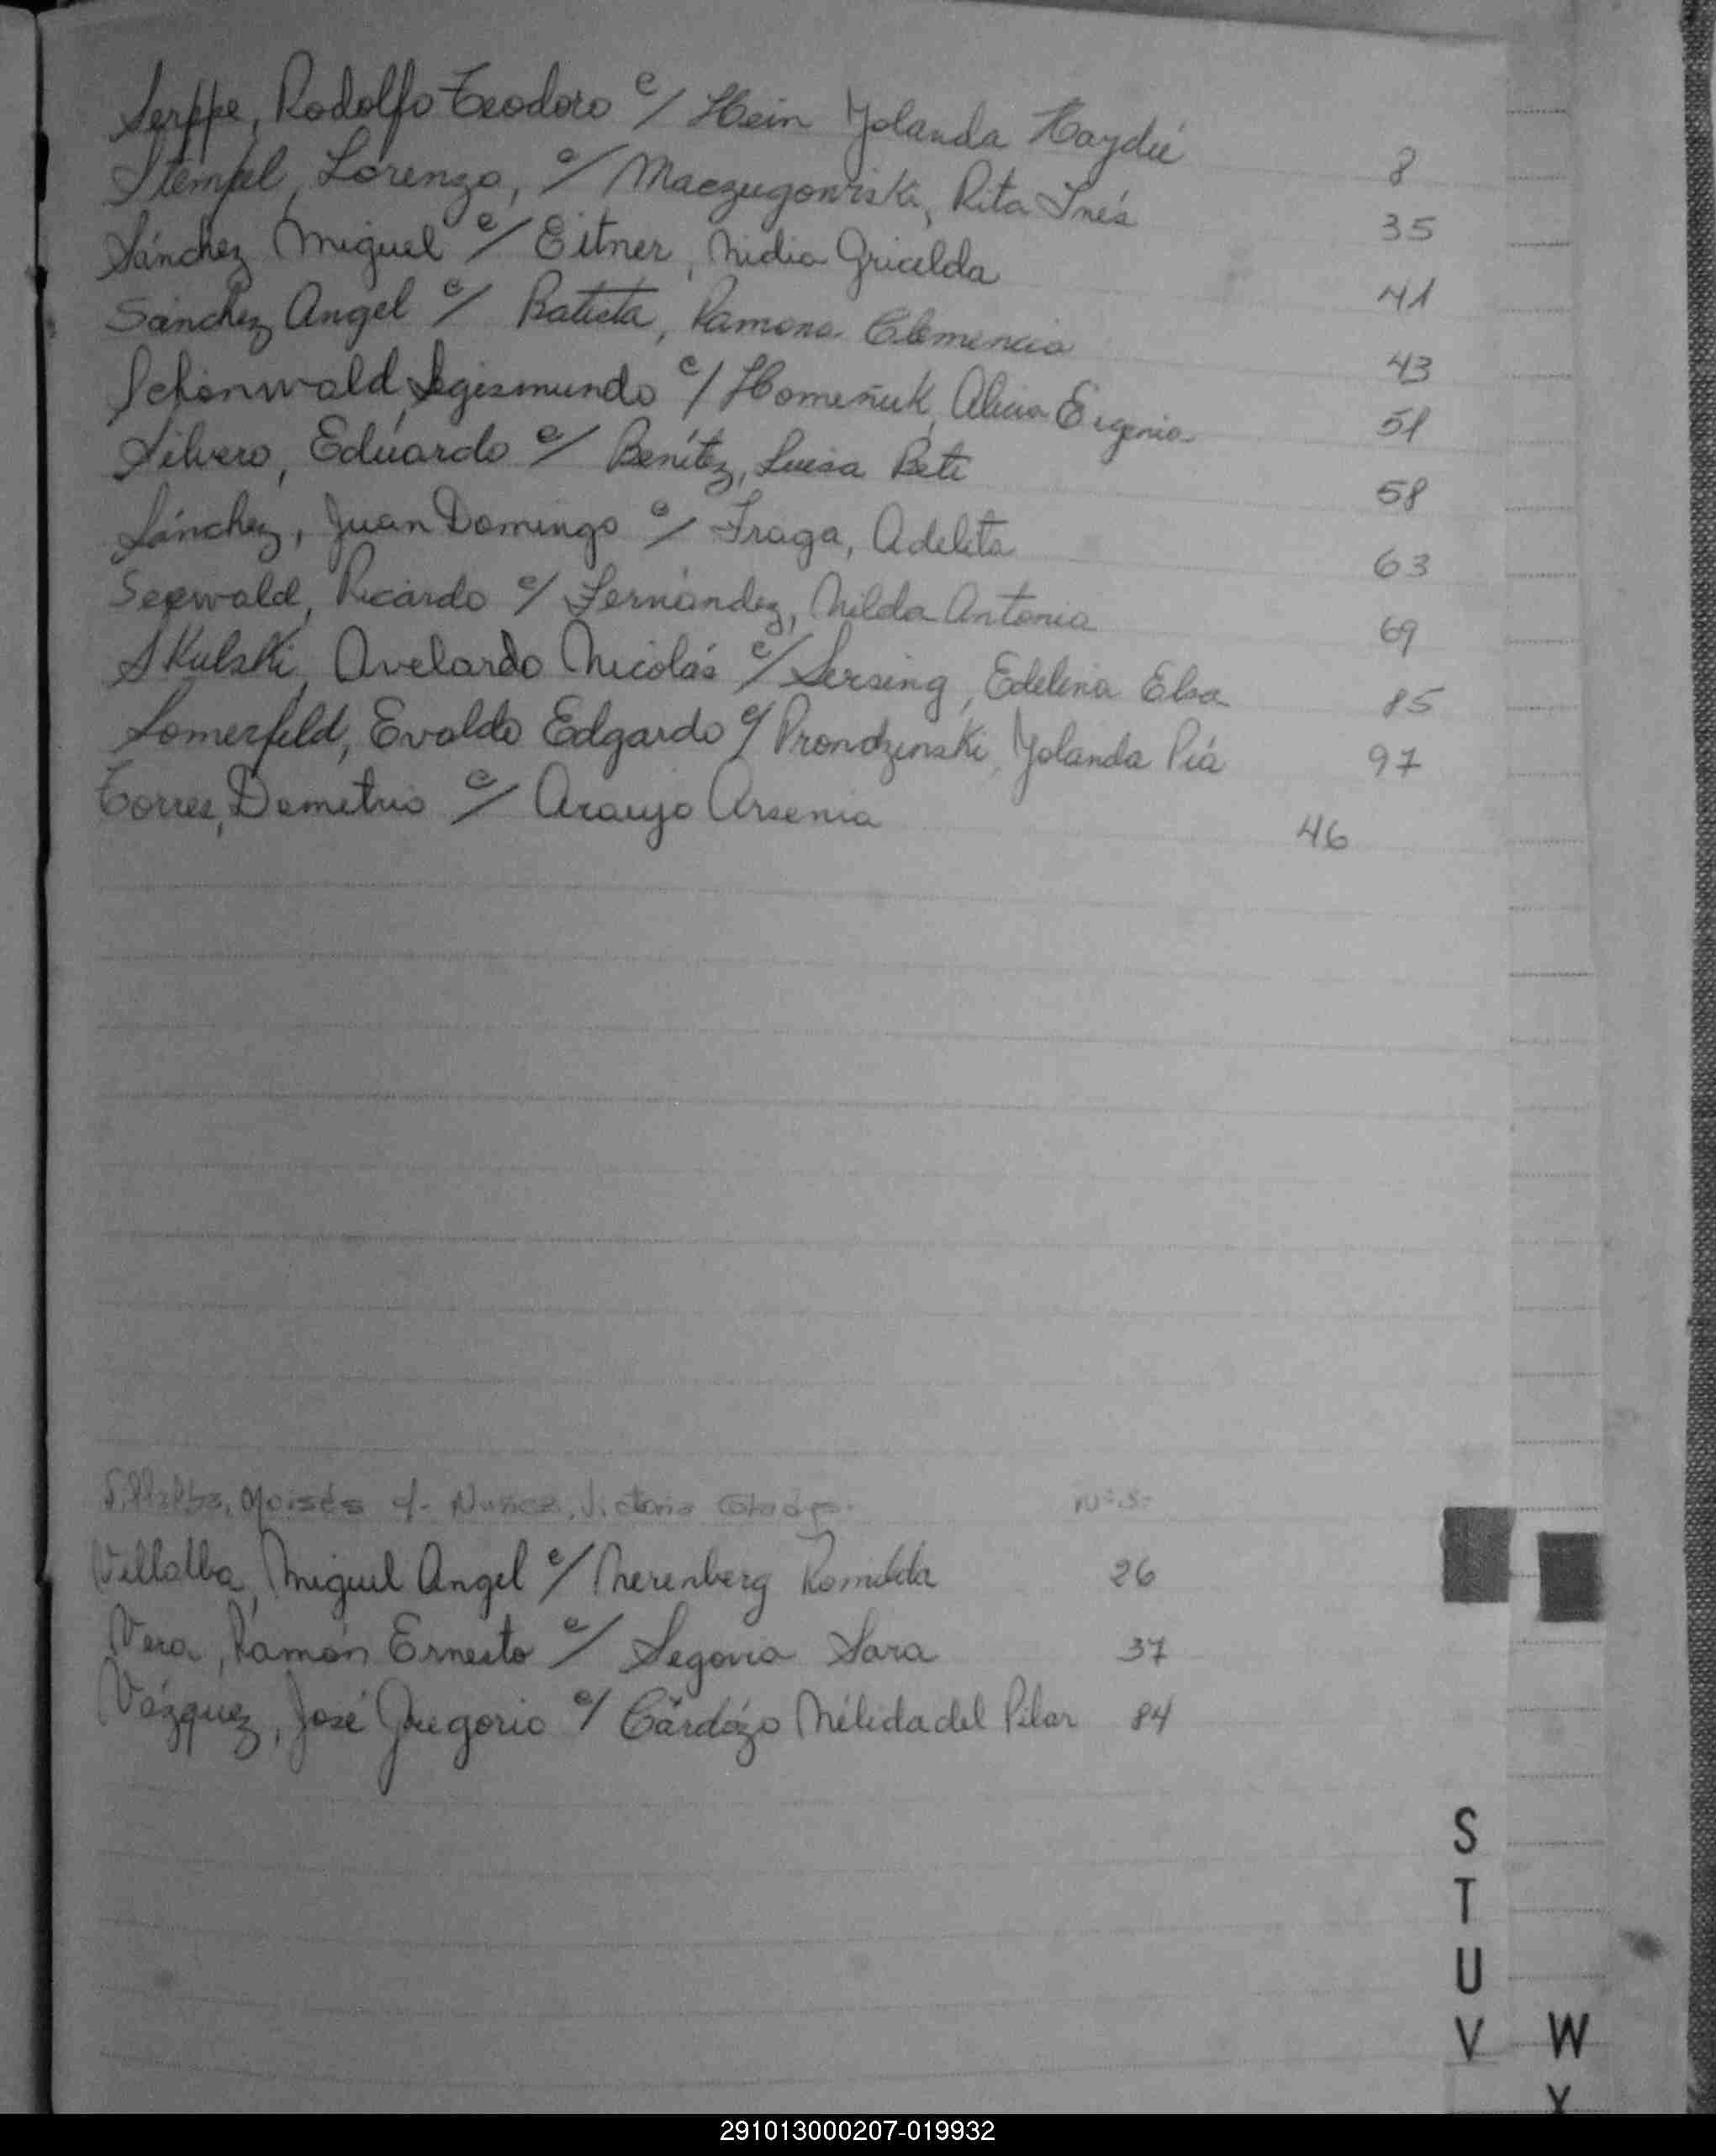 Serppe, Rodolfo Teodoro c/ Hein Yolanda Haydeé 8
Stempel, Lorenzo, c/ Maczugowiski, Rita Inés 35
Sánchez Miguel c/ Eitner, Nidia Gricelda 41
Sánchez Angel c/ Batista, Ramona Clemencia 43
Schonwald, Segismundo c/ Homeñuk, Alicia Eugenia 51
Silvero, Eduardo c/ Benítez, Luisa Beti 58
Sánchez, Juan Domingo c/ Fraga, Adelita 63
Seewald, Ricardo c/ Fernández, Nilda Antonia 69
Skulski, Avelardo Nicolás c/ Sersing, Edelina Elsa 85
Somerfeld, Evaldo Edgardo c/ Prondzinski, Yolanda Pía 97
Torres, Demetrio c/ Araujo Arsenia 46
Villalba, Moisés c/- Nuñez, Victoria
Villalba, Miguel Angel c/ Nerenberg Romilda 26
Vera, Ramón Ernesto c/ Segovia Sara 37
Vázquez, José Gregorio c/ Cardózo Nélida del Pilar 84
S
T
U
V W
X
291013000207-019932